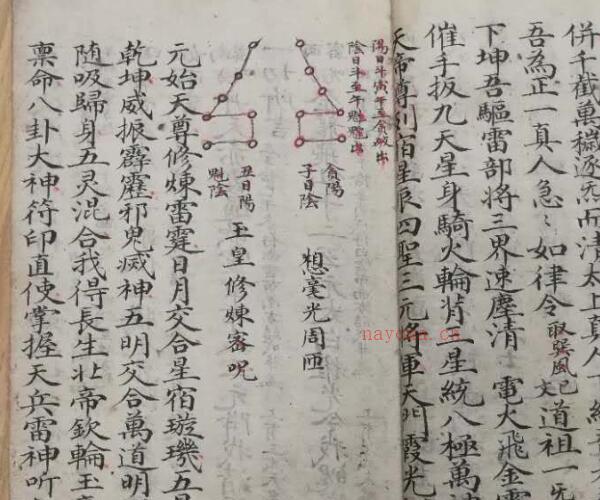 併千截萬穢逐炁而清太上真人
吾為正一真人急〻如律令取巽風已文道祖一炁
下坤吾驅雷部將三界速塵清 電火飛金
催手扳九天星身騎火輪背二星統八極萬
天帝尊列宿星辰四聖三元將軍天門霞光
陽日斗寅午
陰日斗
貪陽
子日陰
想毫光周匝
丑日陽
魁陰
玉皇修煉密呪
元始天尊修煉雷霆日月交合星宿璇璣五
乾坤威振霹靂邪鬼滅神五明交合萬道明
随吸歸身五灵混合我得長生北帝欽輪玉
禀命八卦大神符印直使掌握天兵雷神听
nayona.cn